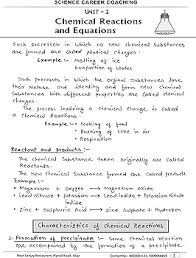 SCIENCE CAREER COACHING
UNIT - I
Chemical Reactions
and Equations
Such processes in which no new chemical substances
are formed are called physical changes :
Example :- Melting of ice
Evaporation of water
Such processes in which the original substances lose
their nature and identity and form new chemical
substances with different properties are called chemical
changes.
The process involving a chemical change, is called
a Chemical Reaction.
Example :- Cooking of food
Rusting of iron in air
Respiration
Reactant and products :-
The chemical substances taken originally are called
the Reactants.
The new chemical substances formed are called products
Magnesium + Oxygen → Magnesium Oxide
Zinc + Sulphuric Acid → Zinc Sulphate + Hydrogen
Characteristics of Chemical Reactions
1. Formation of Precipitate :- Some chemical reaction
are accompanied by the formation of a precipitate.
1